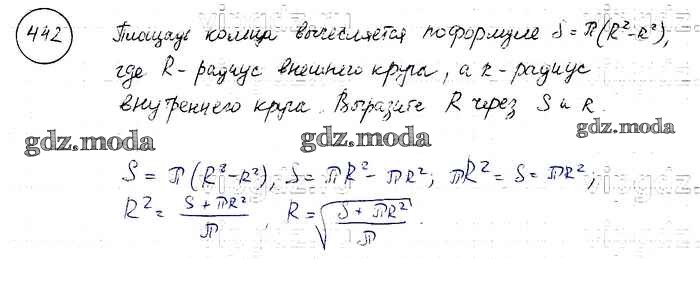 442
Площадь кольца вычесляется по формуле S = π(R²-r²),
где R - радиус внешнего круга, а r - радиус
внутреннего круга. Выразите R через S и r.
gdz.moda gdz.moda gdz.moda
S = π(R²-r²), S = πR² - πr²; πR² = S = πr²,
R² = (S + πr²)/π, R = √((S + πr²)/π).